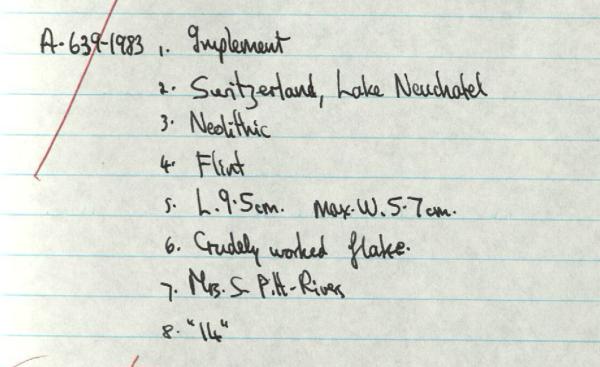 A.639-1983 1. Implement
2. Switzerland, Lake Neuchatel
3. Neolithic
4. Flint
5. L.9.5cm. Max.W.5.7cm.
6. Crudely worked flake.
7. Mrs. S. P.H.-Rivers
8. "14"